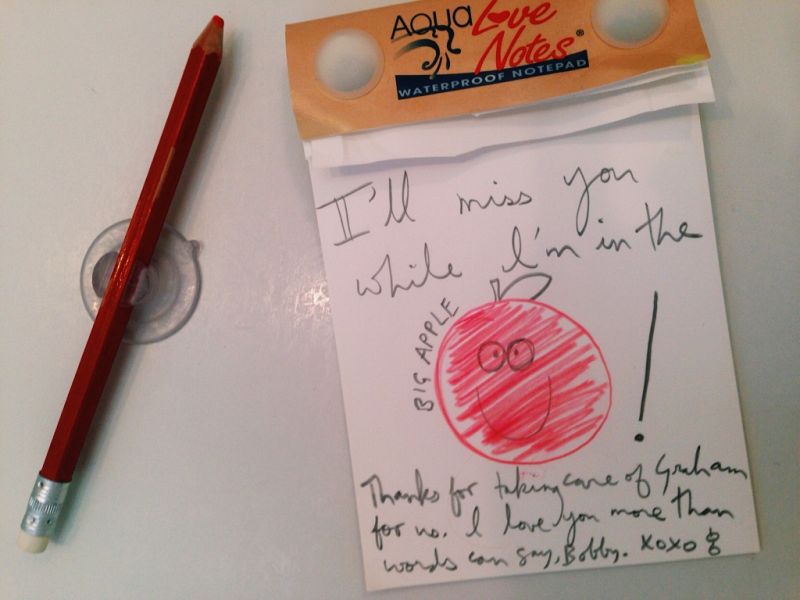 AQUA Love
Notes®
WATERPROOF NOTEPAD
I'll miss you
while I'm in the
BIG APPLE
!
Thanks for taking care of Graham
for us. I love you more than
words can say, Bobby. xoxo